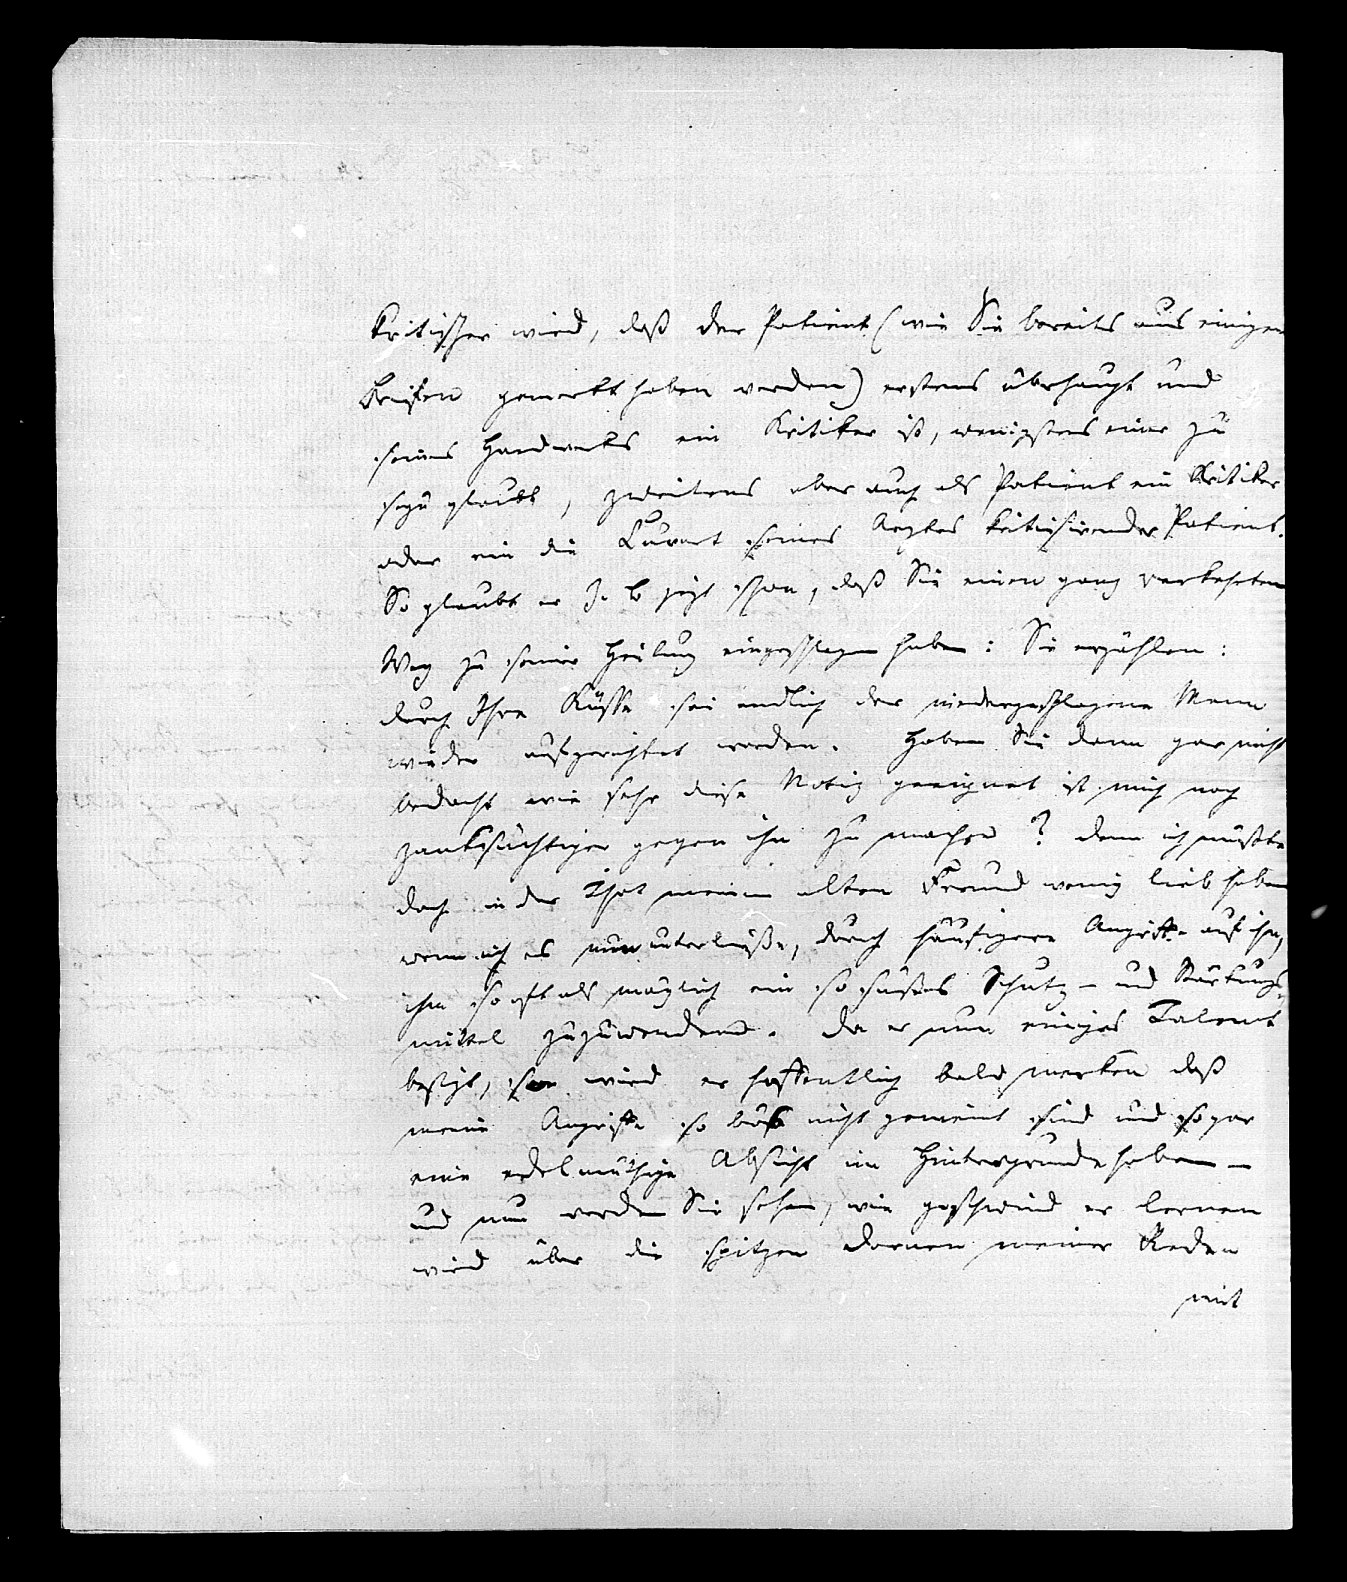 kritischer wird, daß der Patient (wie Sie bereits aus einigen
Briefen gemerkt haben werden) erstens überhaupt und
seines Handwerks ein Kritiker ist, wenigstens einer zu
seyn glaubt, zweitens aber auch als Patient ein Kritiker
oder ein die Curart seines Arztes kritisirender Patient.
So glaubt er z. b jezt schon, daß Sie einen ganz verkehrten
Weg zu seiner Heilung eingeschlagen haben: Sie erzählen:
durch Ihre Küsse sei endlich der niedergeschlagene Mann
wieder aufgerichtet worden. Haben Sie denn gar nicht
bedacht wie sehr diese Notiz geeignet ist mich noch
zanksüchtiger gegen ihn zu machen? denn ich müßte
doch in der That meinen alten Freund wenig lieb haben
wenn ich es nun unterließe, durch häufigere Angriffe auf ihn,
ihm so oft als möglich ein so süßes Schutz- und Stärkungs-
mittel zuzuwenden. Da er nun einiges Talent
besizt, so wird er hoffentlich bald merken daß
meine Angriffe so bös nicht gemeint sind und sogar
eine edelmüthige Absicht im Hintergrunde haben –
und nun werden Sie sehen, wie geschwind er lernen
wird über die spitzen Dornen meiner Reden
mit